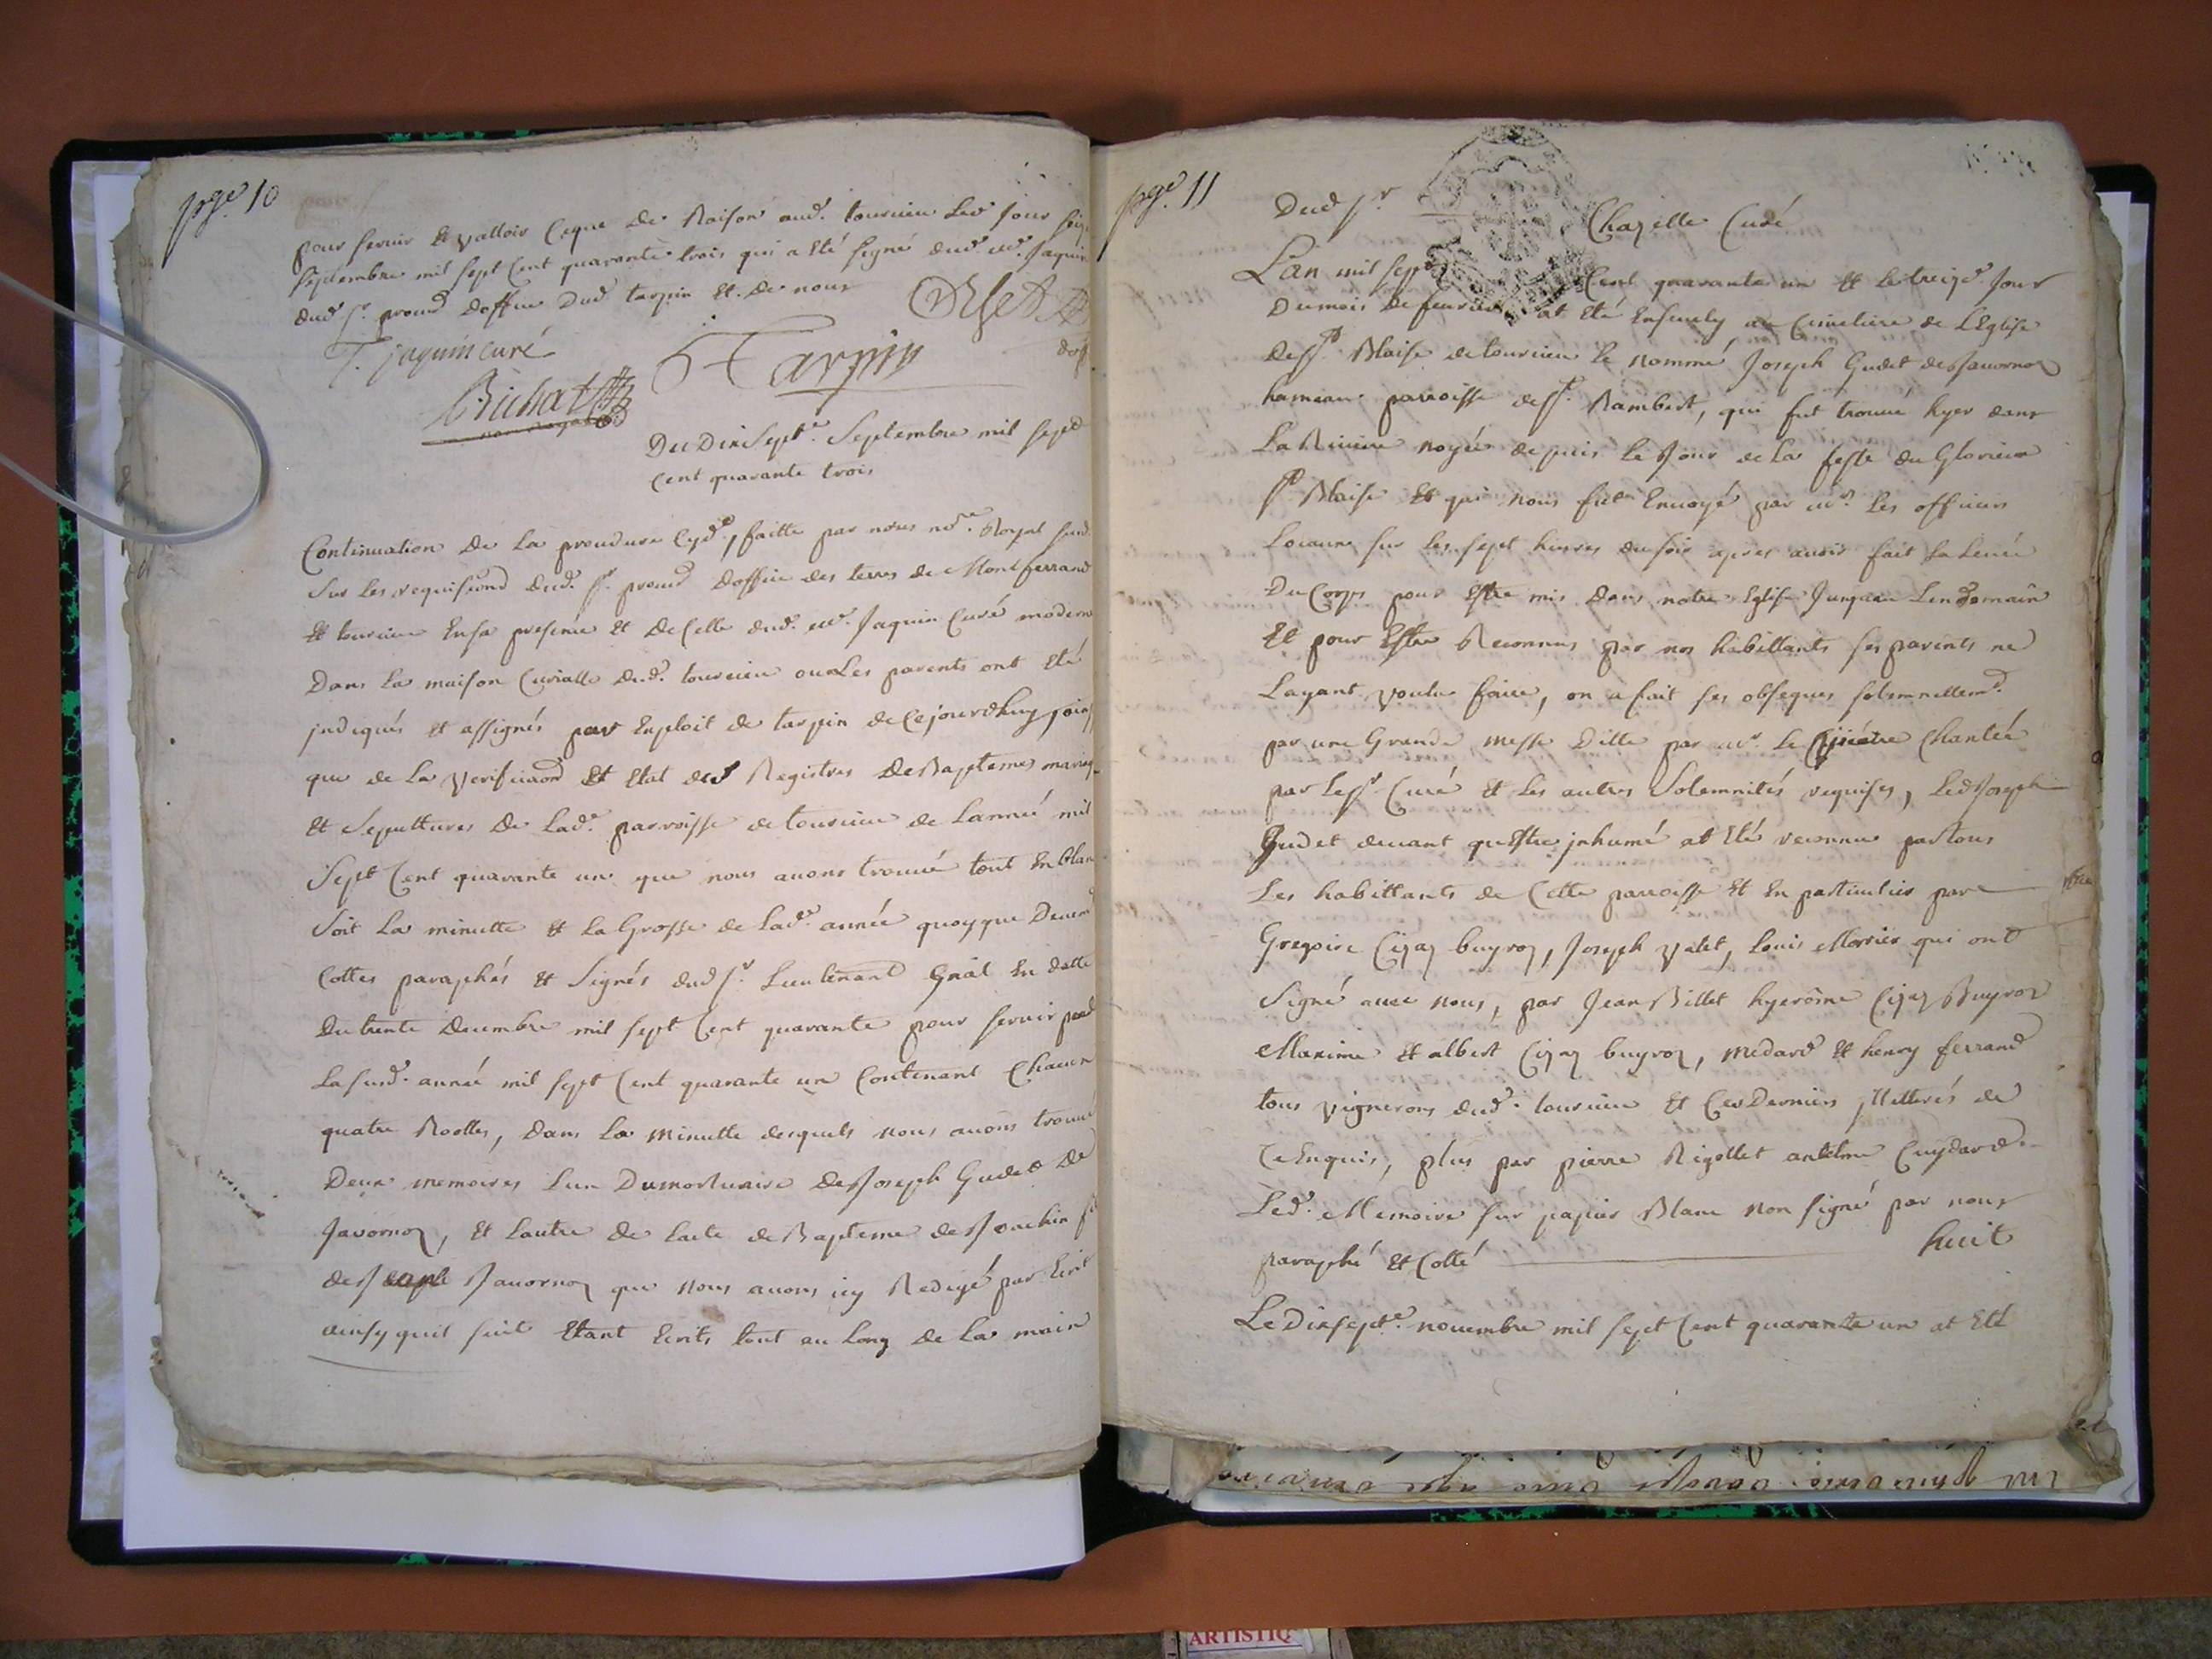 pge. 10
pour servir Et valloir Ceque de Raison aud. torcieu Led jour seiz
septembre mil sept Cent quarante trois qui a Eté signé dud. mr. Jaquin
dud sr. procud d'office dud tarpin Et de nous
T. jaquin curé
Tarpin
Bichat
not royal
Du Dixsepte. Septembre mil sept
Cent quarante trois
Continuation De La procedure Cyd., faitte par nous nore. Royal
Sur Les requisitions dud. sr. procud d'office des terres de Montferrand
Et torcieu En sa presence Et De Celle dud. mr. Jaquin Curé moderne
Dans La maison Curialle dud. torcieu ou Les parents ont Eté
indiqués Et assignés par Exploit de tarpin de Cejourdhuy
que de La verification Et Etat des Registres De Baptemes mariag
Et Sepultures De Lad. parroisse de torcieu de Lannée mil
Sept Cent quarante un que nous avons trouvé tout En blan
Soit La minutte Et La Grosse de Lad. année quoyque
Cottés paraphés Et Signés dud sr. Lieutenant Gnal En datte
Du trente decembre mil sept Cent quarante pour servir pend
La susd. année mil sept Cent quarante un Contenant Chacun
quatre Rolles, dans La Minutte desquels nous avons trouvé
Deux memoires Lun Dumortuaire de Joseph Gudet De
Javornoz, Et Lautre de Lacte de Bapteme de Joachin
de Joseph Javornoz que nous avons icy Redigé par Ecrit
ainsy quil suit Etant Ecrits tout au Long de La main
pge. 11
Dud sr. Chazelle Curé
L'an mil sept Cent quarante un Et Le treize Jour
Dumois de fevrier at Eté Ensevely au Cimetiere de LEglise
de st. Blaise de torcieu Le nommé Joseph Gudet de Javornoz
hameau parroisse de st. Rambert, qui fut trouvé hyer dans
La Riviere noyé depuis Le Jour de La feste du Glorieux
st Blaise Et qui nous fut Envoyé par mrs. Les officiers
Locaux sur Les sept heures du soir apres avoir fait La Levée
Du Corps pour Estre mis dans notre Eglise Jusquau Lendemain
Et pour Estre Reconnus par nos habittants ses parents ne
Layant voulu faire, on a fait ses obseques solemnellemt.
par une Grande messe Ditte par mr. Le Chantée
par Le sr. Curé Et Les autres Solemnités requises, Led Joseph
Gudet devant quEstre inhumé at Eté reconnu par tous
Les habittants de Cette parroisse Et En particulier par
Gregoire Cizaz buyroz, Joseph valet, Louis Morrier qui ont
Signé avec nous, par Jean Billet hyerôme Cizaz Buyroz
Maxime Et albert Cizaz buyroz, medard Et henry ferrand
tous vignerons dud. torcieu Et Ces Derniers illitterés de
Ce Enquis, plus par pierre Rigollet antelme Cuydard.
Led. Memoire sur papier Blanc non signé par nous
paraphé Et Cotté huit
Le Dixsepte. novembre mil sept Cent quarante un at Eté
ARTISTIQ